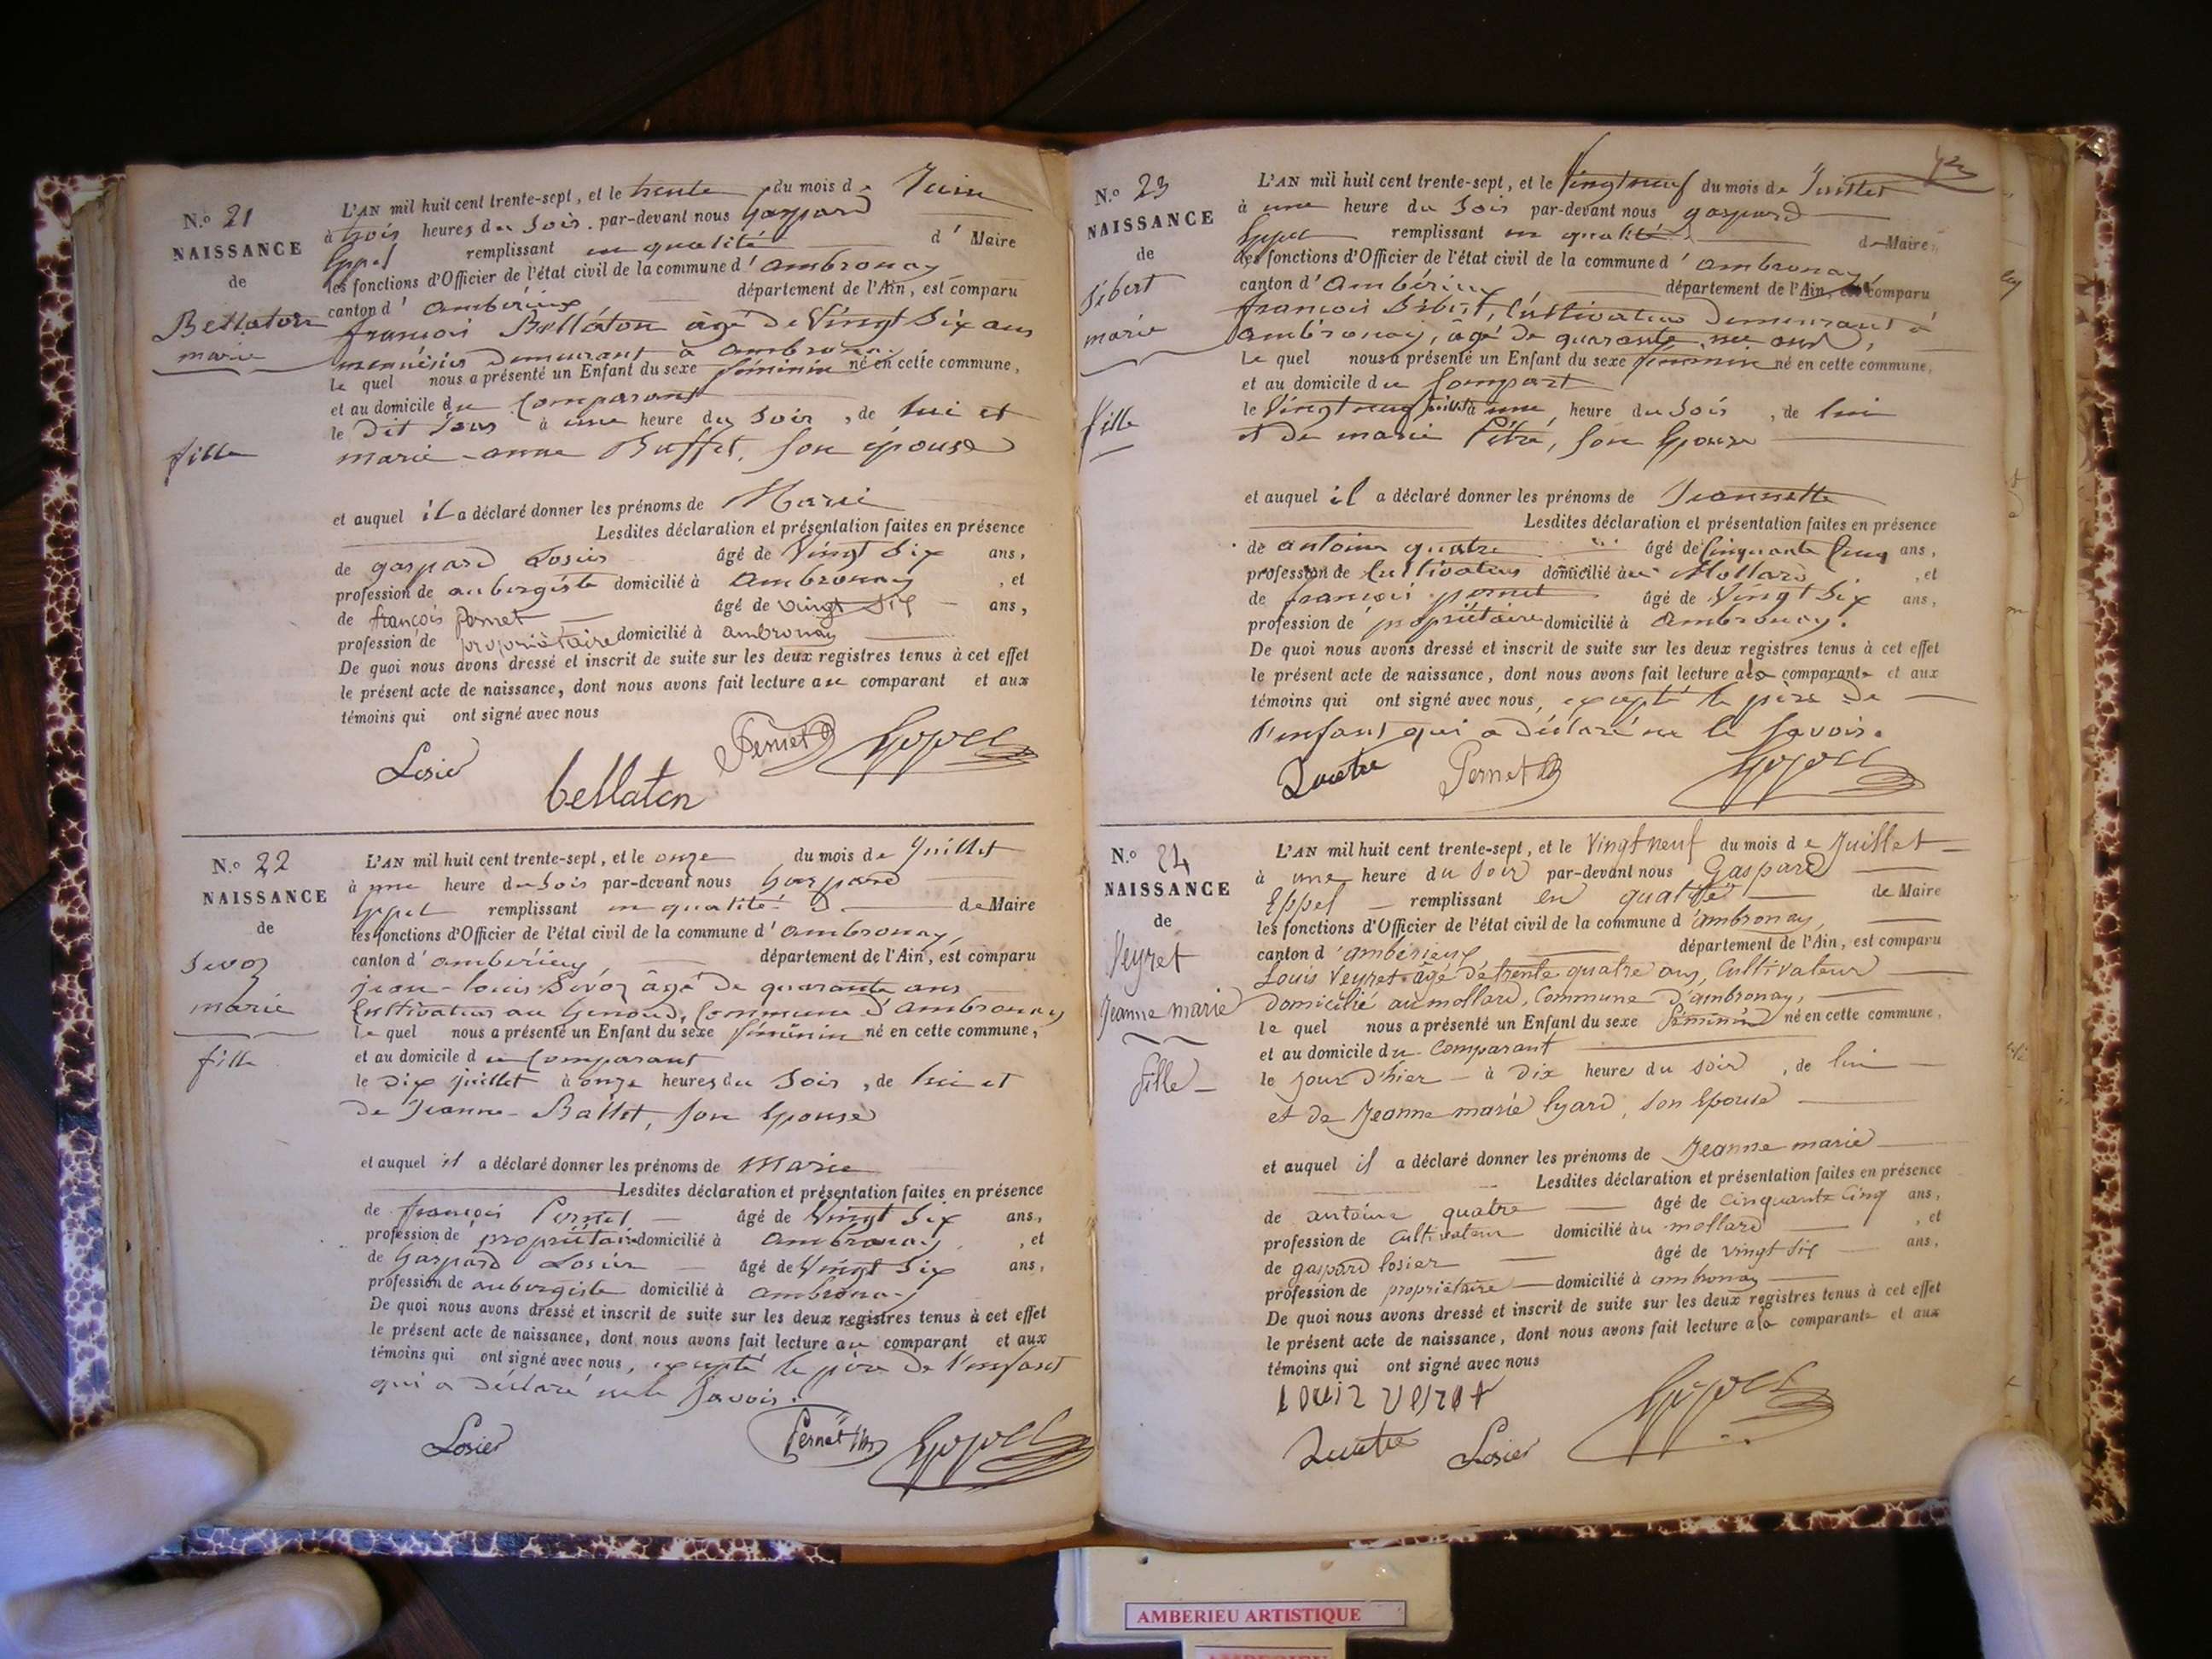 N.º 21
NAISSANCE
de
Bellaton
marie
fille
L'AN mil huit cent trente-sept, et le trente du mois de Juin
à trois heures du Soir. par-devant nous gaspard
Eppel remplissant en qualité d' Maire
les fonctions d'Officier de l'état civil de la commune d'ambronay
canton d'ambérieux département de l'Ain, est comparu
françois Bellaton âgé de Vingt Six ans
menuisier Demeurant à ambronay
le quel nous a présenté un Enfant du sexe féminin né en cette commune,
et au domicile du Comparant
le Dit Jour à une heure du Soir, de lui et
marie-anne Buffet, son épouse
et auquel il a déclaré donner les prénoms de Marie
Lesdites déclaration et présentation faites en présence
de gaspard Losier âgé de Vingt Six ans,
profession de aubergiste domicilié à ambronay, et
de françois Pernet âgé de vingt six ans,
profession de propriétaire domicilié à ambronay
De quoi nous avons dressé et inscrit de suite sur les deux registres tenus à cet effet
le présent acte de naissance, dont nous avons fait lecture au comparant et aux
témoins qui ont signé avec nous
Losier bellaton Pernet Eppel
N.º 22
NAISSANCE
de
Sevoz
marie
fille
L'AN mil huit cent trente-sept, et le onze du mois de Juillet
à une heure du Soir par-devant nous Gaspard
Eppel remplissant en qualité d de Maire
les fonctions d'Officier de l'état civil de la commune d'ambronay,
canton d'ambérieux département de l'Ain, est comparu
jean-louis Sevoz âgé de quarante ans
Cultivateur au Genoud, Commune d'ambronay
le quel nous a présenté un Enfant du sexe féminin né en cette commune,
et au domicile du Comparant
le Dix juillet à onze heures du Soir, de lui et
de Jeanne-Ballet, son Epouse
et auquel il a déclaré donner les prénoms de Marie
Lesdites déclaration et présentation faites en présence
de françois Pernet âgé de Vingt Six ans,
profession de propriétaire domicilié à ambronay, et
de Gaspard Losier âgé de Vingt Six ans,
profession de aubergiste domicilié à ambronay
De quoi nous avons dressé et inscrit de suite sur les deux registres tenus à cet effet
le présent acte de naissance, dont nous avons fait lecture au comparant et aux
témoins qui ont signé avec nous, excepté le père de l'enfant
qui a déclaré ne le Savoir.
Losier Pernet Eppel
N.º 23
NAISSANCE
de
Sibert
marie
fille
L'AN mil huit cent trente-sept, et le Vingt neuf du mois de Juillet
à une heure du Soir par-devant nous gaspard
Eppel remplissant en qualité de Maire
les fonctions d'Officier de l'état civil de la commune d'ambronay
canton d'Ambérieux département de l'Ain, est comparu
françois Sibert, Cultivateur Demeurant à
ambronay, âgé de quarante ans,
le quel nous a présenté un Enfant du sexe féminin né en cette commune,
et au domicile du Compart
le Vingt neuf juillet à une heure du Soir, de lui
et de marie Pitre, son Epouse
et auquel il a déclaré donner les prénoms de Jeannette
Lesdites déclaration et présentation faites en présence
de antoine quatre âgé de Cinquante Cinq ans,
profession de Cultivateur domicilié au Mollard, et
de françois pernet âgé de Vingt Six ans,
profession de propriétaire domicilié à ambronay.
De quoi nous avons dressé et inscrit de suite sur les deux registres tenus à cet effet
le présent acte de naissance, dont nous avons fait lecture comparant et aux
témoins qui ont signé avec nous, excepté le père de
l'enfant qui a déclaré ne le Savoir.
Quatre Pernet Eppel
N.º 24
NAISSANCE
de
Veyret
Jeanne marie
fille
L'AN mil huit cent trente-sept, et le Vingt neuf du mois de Juillet
à une heure du Soir par-devant nous Gaspard
Eppel remplissant en qualité de Maire
les fonctions d'Officier de l'état civil de la commune d'ambronay
canton d'ambérieux département de l'Ain, est comparu
Louis Veyret âgé de trente quatre ans, Cultivateur
domicilié au mollard, Commune d'ambronay,
le quel nous a présenté un Enfant du sexe féminin né en cette commune,
et au domicile du Comparant
le jour d'hier à Dix heures du soir, de lui
et de Jeanne marie lyard, son Epouse
et auquel il a déclaré donner les prénoms de Jeanne marie
Lesdites déclaration et présentation faites en présence
de antoine quatre âgé de cinquante cinq ans,
profession de Cultivateur domicilié au mollard, et
de gaspard losier âgé de vingt six ans,
profession de propriétaire domicilié à ambronay
De quoi nous avons dressé et inscrit de suite sur les deux registres tenus à cet effet
le présent acte de naissance, dont nous avons fait lecture comparant et aux
témoins qui ont signé avec nous
Quatre Losier Eppel
AMBERIEU ARTISTIQUE